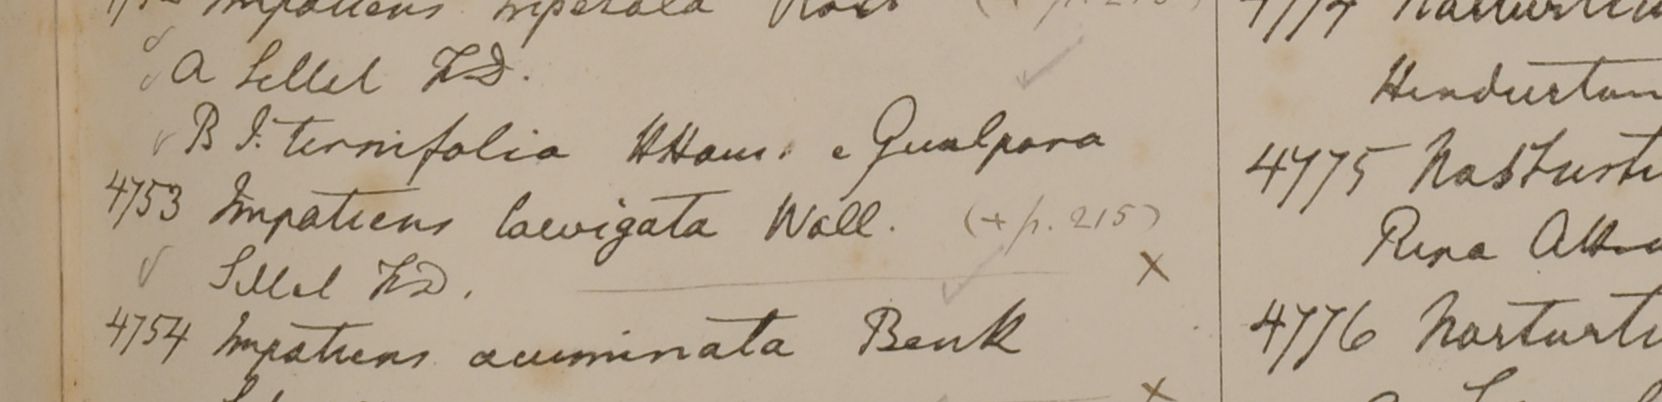 Impatiens
A Sillet F.D.
B I. ternifolia HHam. e Gualpara
4753 Impatiens laevigata Wall. (+ p. 215)
Sillet F.D. X
4754 Impatiens acuminata Benth
X
Hindustan
4775 Nasturti
Pura
4776 Nasturti